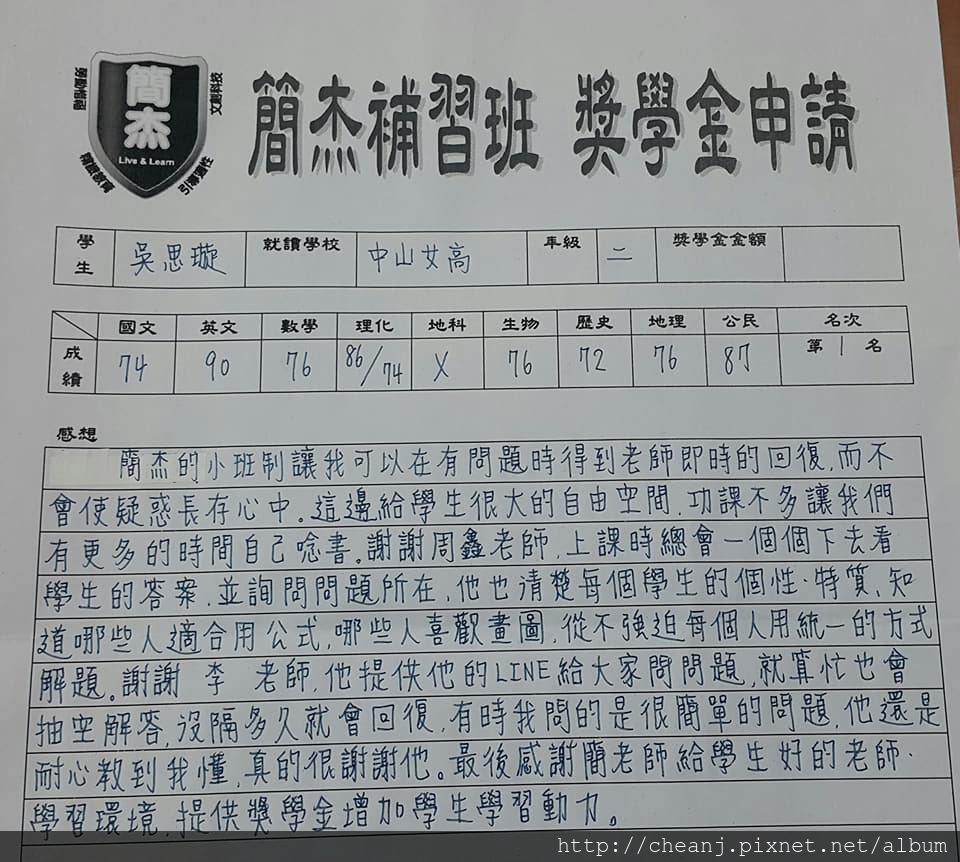 簡杰
Live & Learn
文創科技
引導適性
簡杰補習班 獎學金申請
學生 吳思璇 就讀學校 中山女高 年級 二 獎學金金額
國文 英文 數學 理化 地科 生物 歷史 地理 公民 名次
成績 74 90 76 86/74 X 76 72 76 87 第 1 名
感想
簡杰的小班制讓我可以在有問題時得到老師即時的回復,而不
會使疑惑長存心中。這邊給學生很大的自由空間,功課不多讓我們
有更多的時間自己唸書。謝謝周鑫老師,上課時總會一個個下去看
學生的答案,並詢問問題所在,他也清楚每個學生的個性、特質,知
道哪些人適合用公式,哪些人喜歡畫圖,從不強迫每個人用統一的方式
解題。謝謝 李 老師,他提供他的LINE給大家問問題,就算忙也會
抽空解答,沒隔多久就會回復,有時我問的是很簡單的問題,他還是
耐心教到我懂,真的很謝謝他。最後感謝簡老師給學生好的老師、
學習環境,提供獎學金增加學生學習動力。
http://cheanj.pixnet.net/album